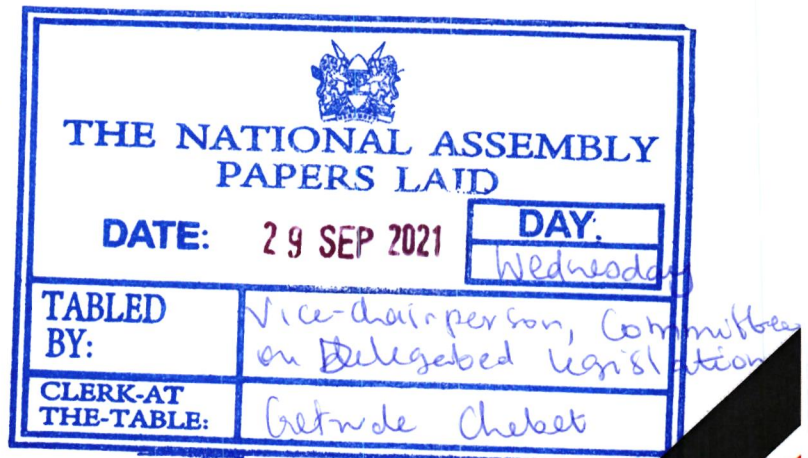 THE NATIONAL ASSEMBLY
PAPERS LAID
DATE: 29 SEP 2021
DAY:
Wednesday
TABLED
BY:
Vice-chairperson, Committee
on Delegated Legislation
CLERK-AT
THE-TABLE:
Getrude Chebet